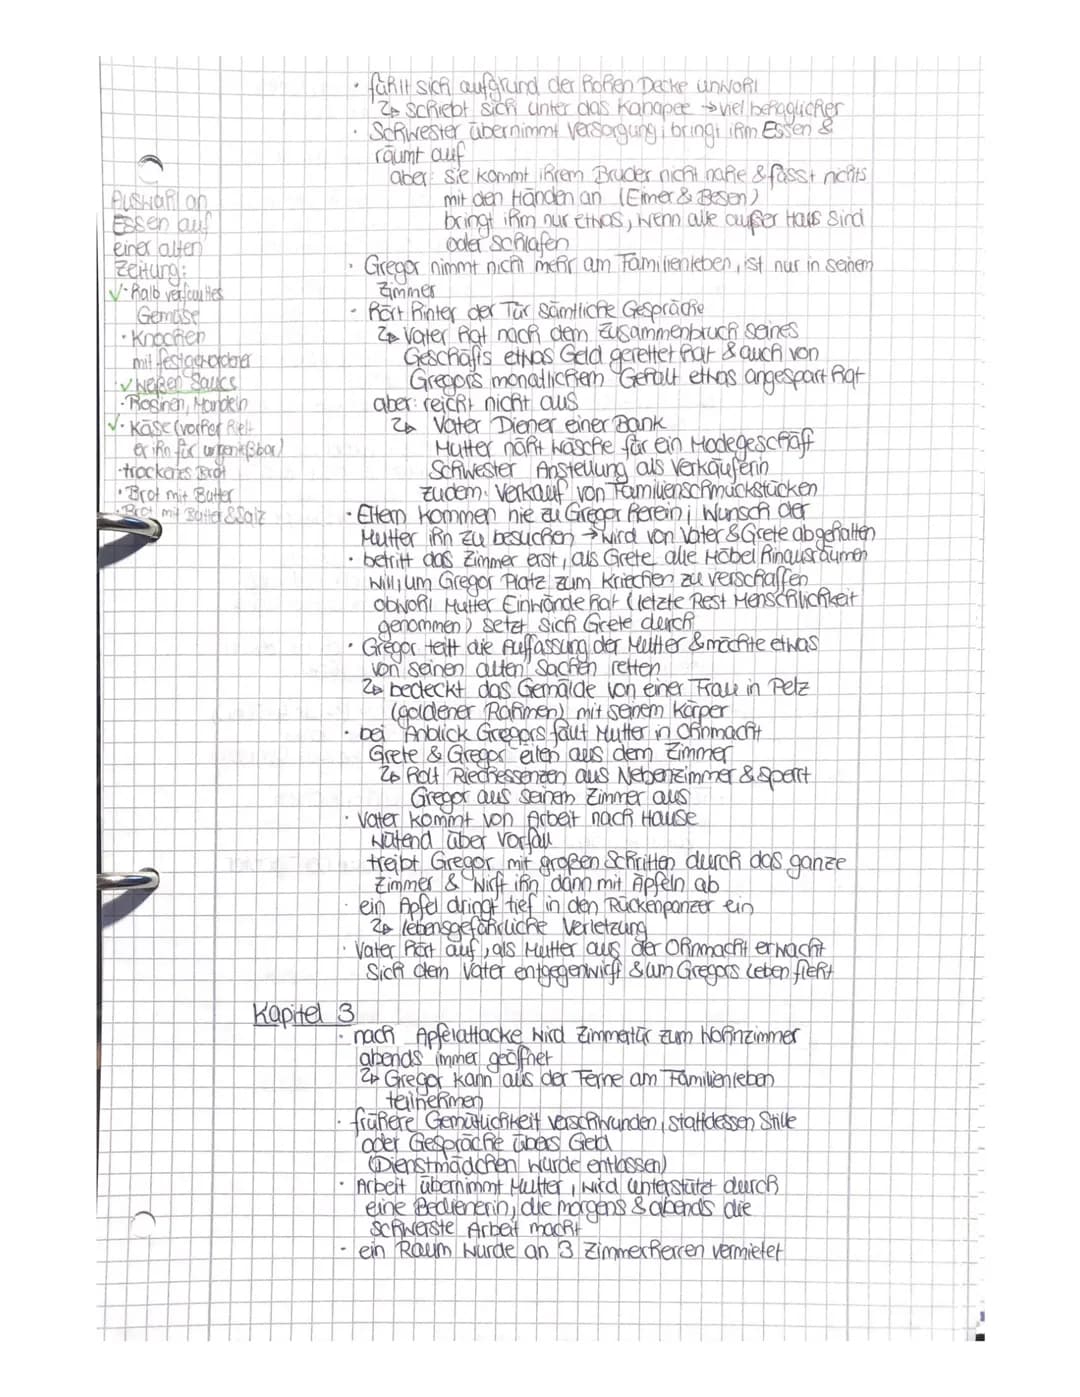 · fühlt sich aufgrund der hohen Decke unwohl
↳ schiebt sich unter das Kanapee → viel behaglicher
· Schwester übernimmt Versorgung; bringt ihm Essen &
räumt auf
aber: sie kommt ihrem Bruder nicht nahe & fasst nichts
mit den Händen an (Eimer & Besen)
bringt ihm nur etwas, wenn alle außer Haus sind
oder schlafen
Auswahl an
Essen auf
einer alten
Zeitung:
✓· halb verfaultes
Gemüse
· Knochen
mit festgewordener
✓ weißen Sauce
· Rosinen, Mandeln
✓· Käse (vorher hielt
er ihn für ungenießbar)
· trockenes Brot
· Brot mit Butter
· Brot mit Butter & Salz
· Gregor nimmt nicht mehr am Familienleben, ist nur in seinem
Zimmer
· hört hinter der Tür sämtliche Gespräche
↳ Vater hat nach dem Zusammenbruch seines
Geschäfts etwas Geld gerettet hat & auch von
Gregors monatlichem Gehalt etwas angespart hat
aber: reicht nicht aus
↳ Vater Diener einer Bank
Mutter näht Wäsche für ein Modegeschäft
Schwester Anstellung als Verkäuferin
zudem: Verkauf von Familienschmuckstücken
· Eltern kommen nie zu Gregor herein; Wunsch der
Mutter ihn zu besuchen → wird von Vater & Grete abgehalten
· betritt das Zimmer erst, als Grete alle Möbel hinausräumen
will, um Gregor Platz zum Kriechen zu verschaffen
obwohl Mutter Einwände hat (letzte Rest Menschlichkeit
genommen) setzt sich Grete durch
· Gregor teilt die Auffassung der Mutter & möchte etwas
von seinen alten Sachen retten
↳ bedeckt das Gemälde von einer Frau in Pelz
(goldener Rahmen) mit seinem Körper
· bei Anblick Gregors fällt Mutter in Ohnmacht
Grete & Gregor eilen aus dem Zimmer
↳ holt Riechessenzen aus Nebenzimmer & sperrt
Gregor aus seinem Zimmer aus
· Vater kommt von Arbeit nach Hause
wütend über Vorfall
treibt Gregor mit großen Schritten durch das ganze
Zimmer & wirft ihn dann mit Äpfeln ab
· ein Apfel dringt tief in den Rückenpanzer ein
↳ lebensgefährliche Verletzung
· Vater hört auf, als Mutter aus der Ohnmacht erwacht
sich dem Vater entgegenwirft & um Gregors Leben fleht
Kapitel 3
· nach Apfelattacke wird Zimmertür zum Wohnzimmer
abends immer geöffnet
↳ Gregor kann aus der Ferne am Familienleben
teilnehmen
· frühere Gemütlichkeit verschwunden, stattdessen Stille
oder Gespräche übers Geld
(Dienstmädchen wurde entlassen)
· Arbeit übernimmt Mutter, wird unterstützt durch
eine Bedienerin, die morgens & abends die
schwerste Arbeit macht
· ein Raum wurde an 3 Zimmerherren vermietet